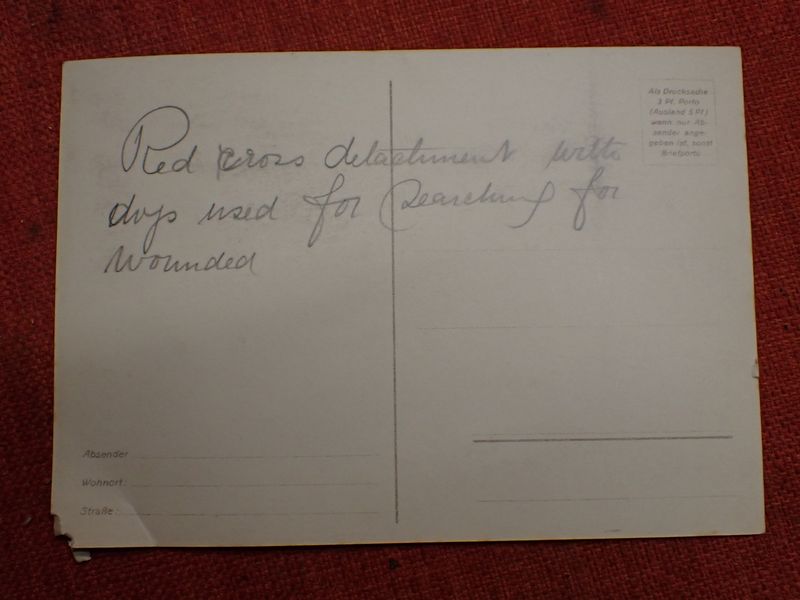 Als Drucksache
3 Pf. Porto
(Ausland 5 Pf.)
wenn nur Ab-
sender ange-
geben ist, sonst
Briefporto
Red cross detachment with
dogs used for searching for
wounded
Absender
Wohnort:
Straße: